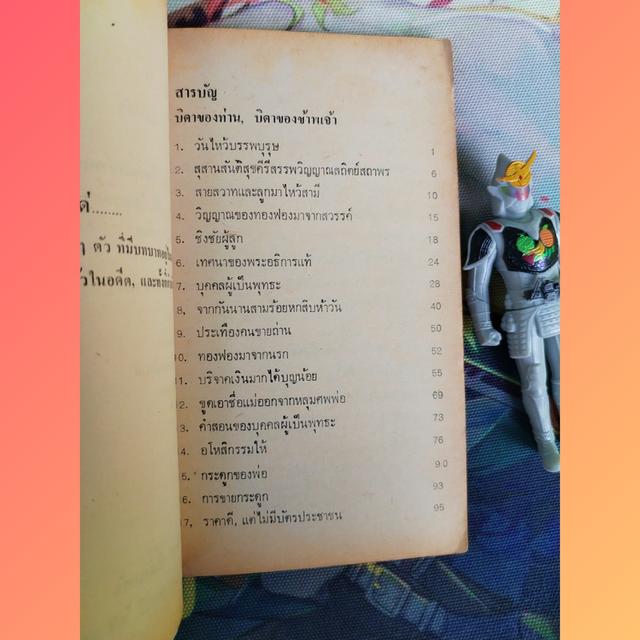 สารบัญ
บิดาของท่าน, บิดาของข้าพเจ้า
1. วันไหว้บรรพบุรุษ 1
2. สุสานสันติสุขคีรีสรรพวิญญาณสถิตย์สถาพร 6
3. สายสวาทและลูกมาไหว้สามี 10
4. วิญญาณของทองฟองมาจากสวรรค์ 15
5. ชิงชัยผู้ลูก 18
6. เทศนาของพระอธิการแท้ 24
7. บุคคลผู้เป็นพุทธะ 28
8. จากกันนานสามร้อยหกสิบห้าวัน 40
9. ประเทืองคนขายถ่าน 50
10. ทองฟองมาจากนรก 52
11. บริจาคเงินมากได้บุญน้อย 55
12. ขูดเอาชื่อแม่ออกจากหลุมศพพ่อ 69
13. คำสอนของบุคคลผู้เป็นพุทธะ 73
14. อโหสิกรรมให้ 76
15. กระดูกของพ่อ 90
16. การขายกระดูก 93
17. ราคาดี, แต่ไม่มีบัตรประชาชน 95
ตัว ที่มีบทบาท
ในอดีต, และ